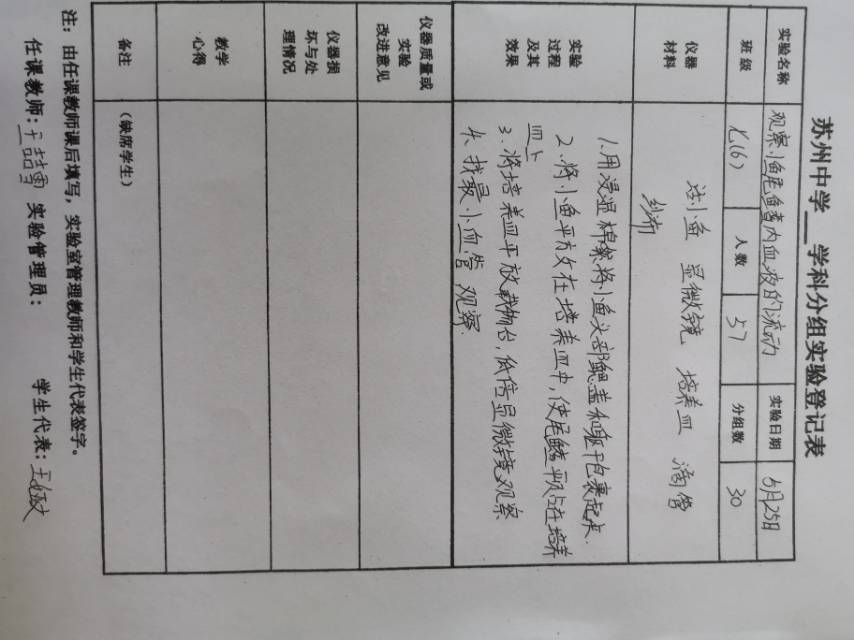 苏州中学___学科分组实验登记表
实验名称 观察小鱼尾鳍内血液的流动 实验日期 5月25日
班级 七(6) 人数 57 分组数 30
仪器 活小鱼 显微镜 培养皿 滴管
材料 纱布
实验 1.用浸湿棉絮将小鱼头部鳃盖和躯干包裹起来.
过程 2.将小鱼平放在培养皿中,使尾鳍平贴在培养
及其 皿上
效果 3.将培养皿平放载物台,低倍显微镜观察
4.找最小血管观察.
仪器质量或
实验
改进意见
仪器损
坏与处
理情况
教学
心得
备注 (缺席学生)
注:由任课教师课后填写,实验室管理教师和学生代表签字。
任课教师: 实验管理员: 学生代表: